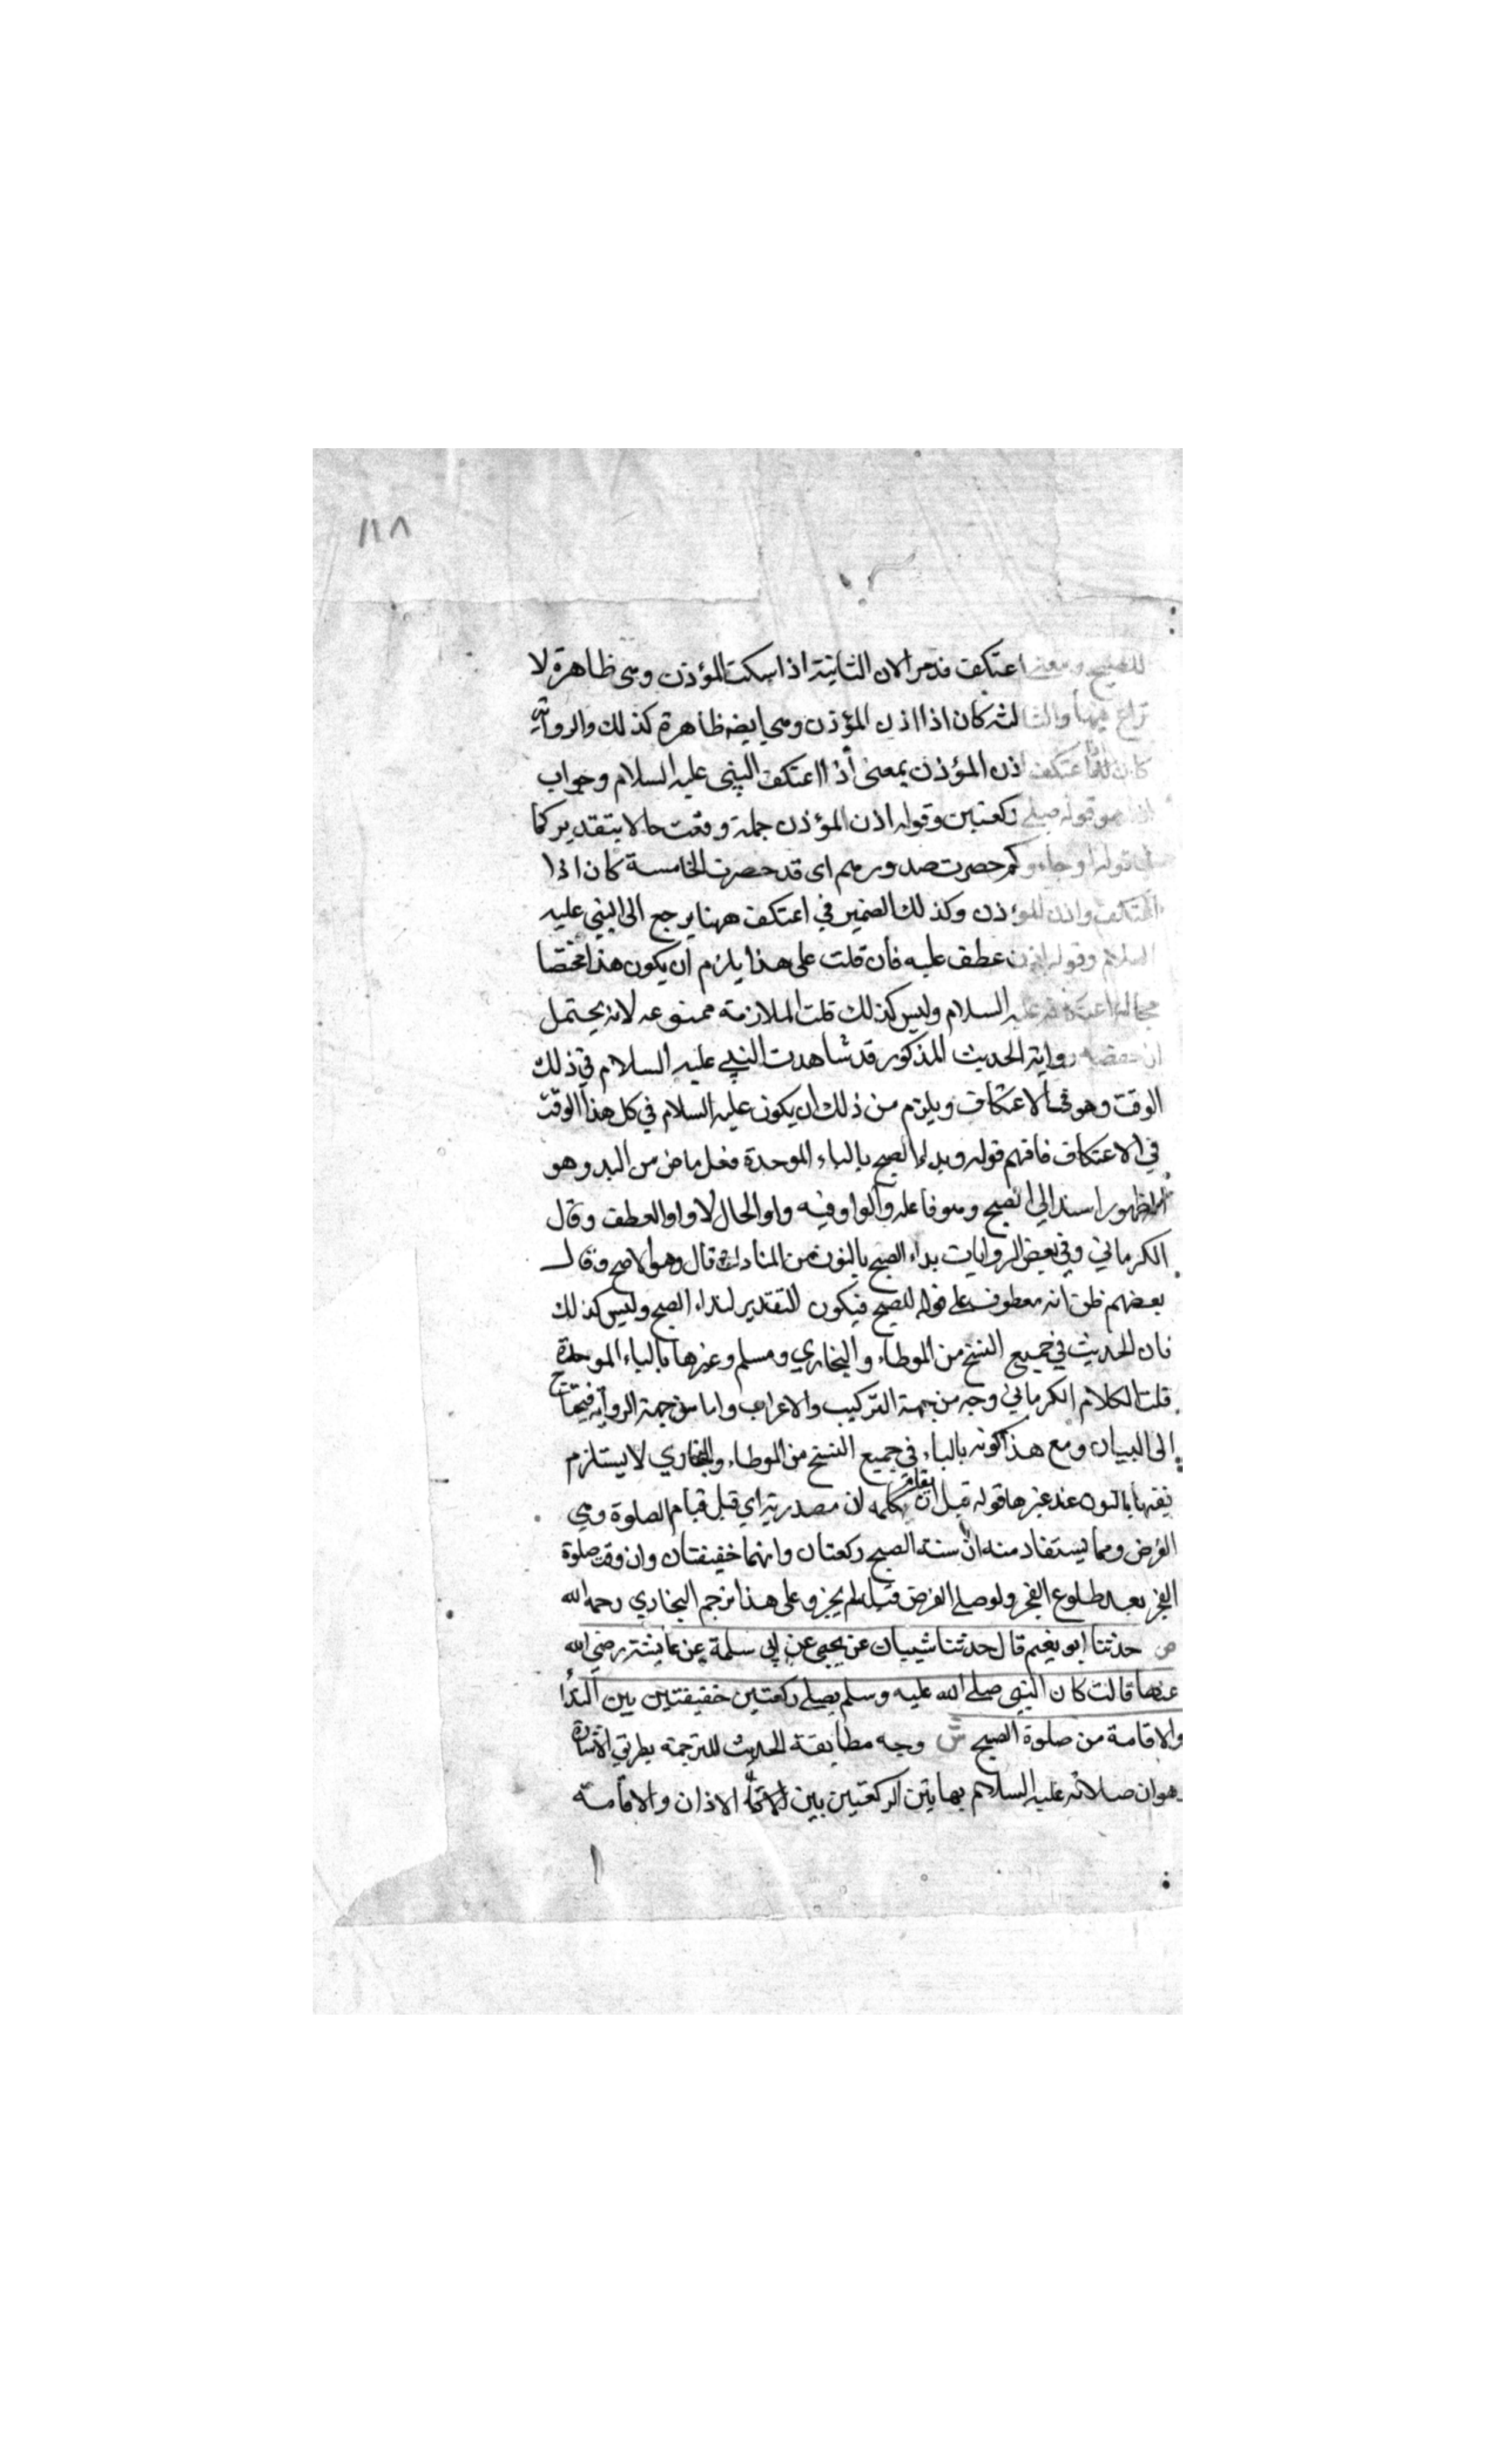 ١١٨
للصبح ومعنى اعتكف قد مر الان الثانية اذا سكت المؤذن وهى ظاهرة لا
نزاع فيها والثالثه كان اذا اذن المؤذن وهى ايضه ظاهرة كذلك والروابعة
كان اذا اعتكف اذن المؤذن بمعنى أذا اعتكف النبى عليه السلام وجواب
اذا هو قوله صلى ركعتين وقوله اذن المؤذن جملة وقعت حالا بتقدير كما
فى قوله او جاءوكم حصرت صدورهم اى قد حصرت الخامسة كان اذا
اعتكف واذن المؤذن وكذلك الضمير في اعتكف ههنا يرجع الى النبي عليه
السلام وقوله اذن عطف عليه فان قلت على هذا يلزم ان يكون هذا مختصا
بحالة اعتكافه عليه السلام وليس كذلك قلت الملازمة ممنوعه لانه يحتمل
ان حفصه رواية الحديث المذكور قد شاهدت النبي عليه السلام في ذلك
الوقت وهو في الاعتكاف ويلزم من ذلك ان يكون عليه السلام في كل هذا الوقت
في الاعتكاف فافهم قوله وبدا الصبح بالباء الموحدة فعل ماض من البدو وهو
الظهور اسند الي الصبح وهو فاعله والواو فيه واو الحال لا واو العطف وقال
الكرماني وفي بعض الروايات بداء الصبح بالنون من المنادات قال وهو الاصح وقال
بعضهم ظن انه معطوف على قوله للصبح فيكون التقدير لنداء الصبح وليس كذلك
فان الحديث في جميع النسخ من الموطاء والبخاري ومسلم وغيرها بالباء الموحدة
قلت لكلام الكرماني وجه من جهة التركيب والاعراب واما من جهة الروآية فيحتاج
الى البيان ومع هذا كونه بالباء في جميع النسخ من الموطاء والبخاري لا يستلزم
نفيها بالنون عند غيرها قوله قبل ان يقام كلمه ان مصدرية اي قبل قيام الصلوة وهي
الفرض ومما يستفاد منه ان سنة الصبح ركعتان وانهما خفيفتان وان وقت صلوة
الفجر بعد طلوع الفجر ولو صلى الفرض قبله لم يجز وعلى هذا ترجم البخاري رحمه الله
ص حدثنا ابو نعيم قال حدثنا شيبان عن يحيى عن ابى سلمة عن عايشة رضي الله
عنها قالت كان النبي صلى الله عليه وسلم يصلى ركعتين خفيفتين بين الندا
والاقامة من صلوة الصبح ش وجه مطابقة الحديث للترجمة بطريق الاشارة
وهو ان صلاته عليه السلام بهاتين الركعتين بين الاذان والاقامة